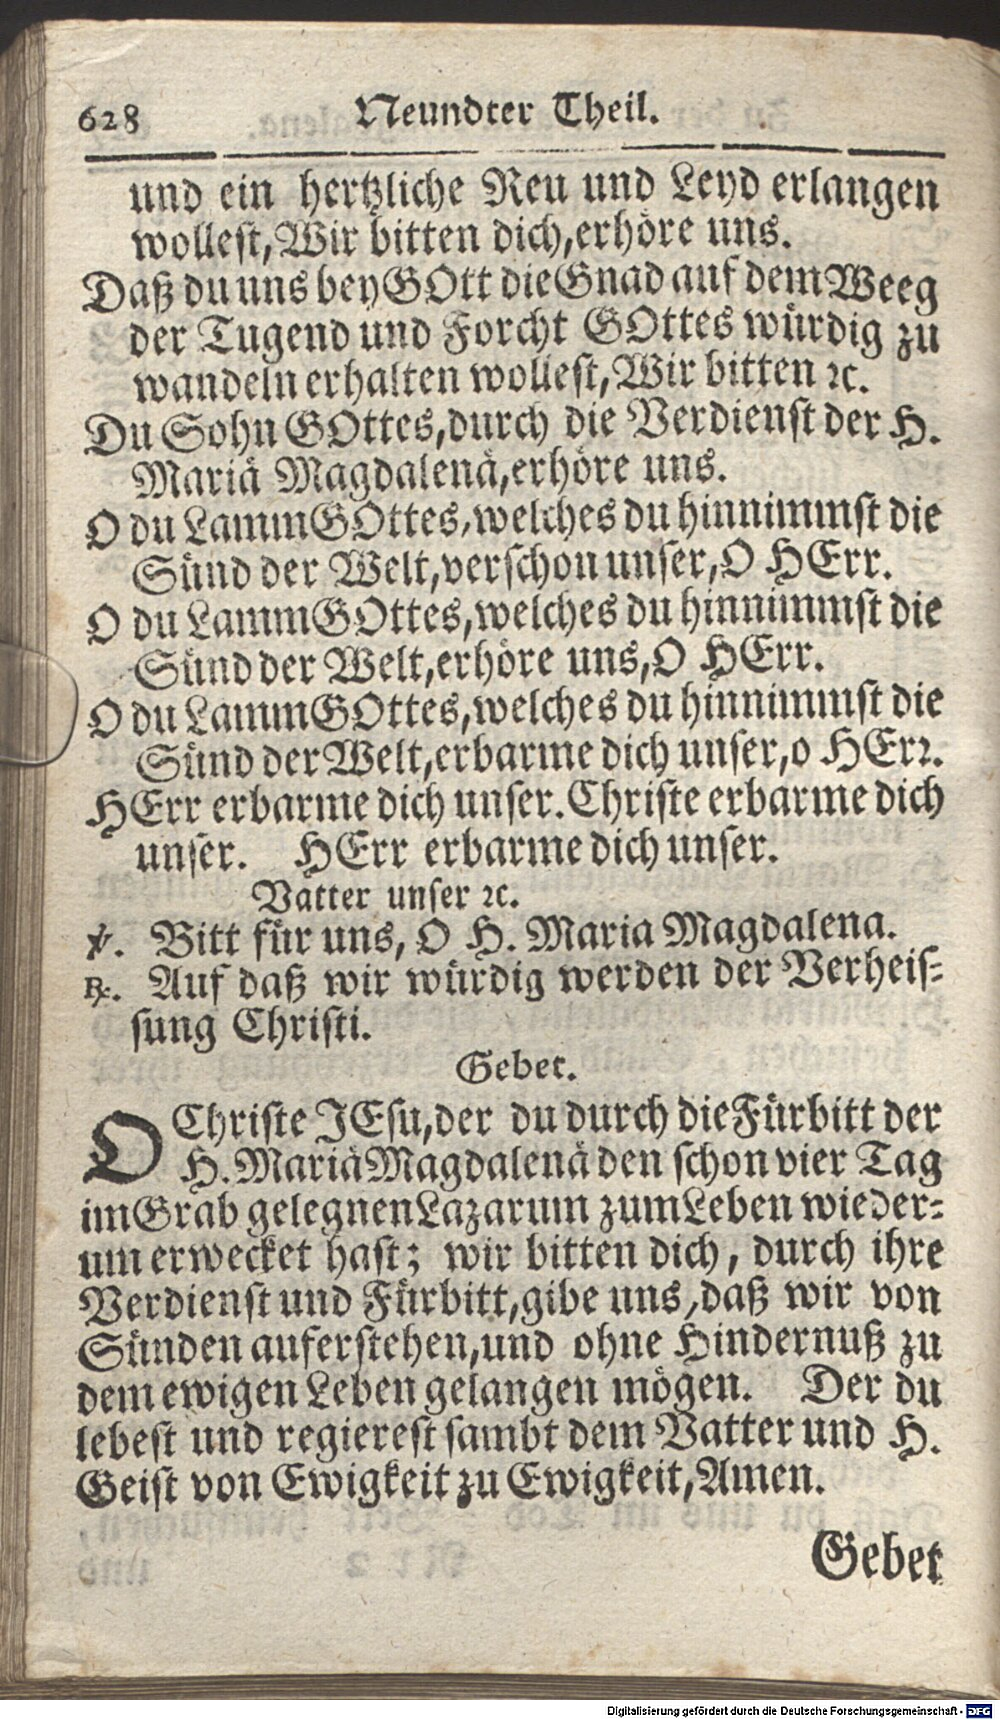 628 Neundter Theil.
und ein hertzliche Reu und Leyd erlangen
wollest, Wir bitten dich, erhöre uns.
Daß du uns bey GOtt die Gnad auf dem Weeg
der Tugend und Forcht GOttes würdig zu
wandeln erhalten wollest, Wir bitten ꝛc.
Du Sohn GOttes, durch die Verdienst der H.
Mariä Magdalenä, erhöre uns.
O du Lamm GOttes, welches du hinnimmst die
Sünd der Welt, verschon unser, O HErr.
O du Lamm GOttes, welches du hinnimmst die
Sünd der Welt, erhöre uns, O HErr.
O du Lamm GOttes, welches du hinnimmst die
Sünd der Welt, erbarme dich unser, o HErꝛ.
HErr erbarme dich unser. Christe erbarme dich
unser. HErr erbarme dich unser.
Vatter unser ꝛc.
℣. Bitt für uns, O H. Maria Magdalena.
℞. Auf daß wir würdig werden der Verheis-
sung Christi.
Gebet.
O Christe JEsu, der du durch die Fürbitt der
H. Mariä Magdalenä den schon vier Tag
im Grab gelegnen Lazarum zum Leben wieder-
um erwecket hast; wir bitten dich, durch ihre
Verdienst und Fürbitt, gibe uns, daß wir von
Sünden auferstehen, und ohne Hindernuß zu
dem ewigen Leben gelangen mögen. Der du
lebest und regierest sambt dem Vatter und H.
Geist von Ewigkeit zu Ewigkeit, Amen.
Gebet
Digitalisierung gefördert durch die Deutsche Forschungsgemeinschaft - DFG